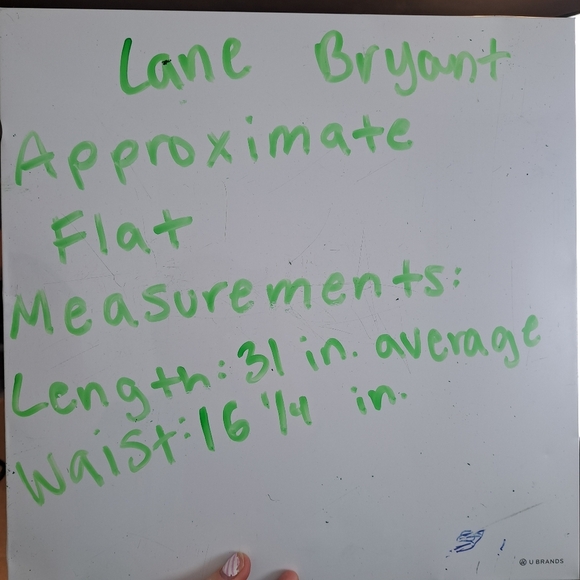 Lane Bryant
Approximate
Flat
Measurements:
Length: 31 in. average
Waist: 16 1/4 in.
U BRANDS